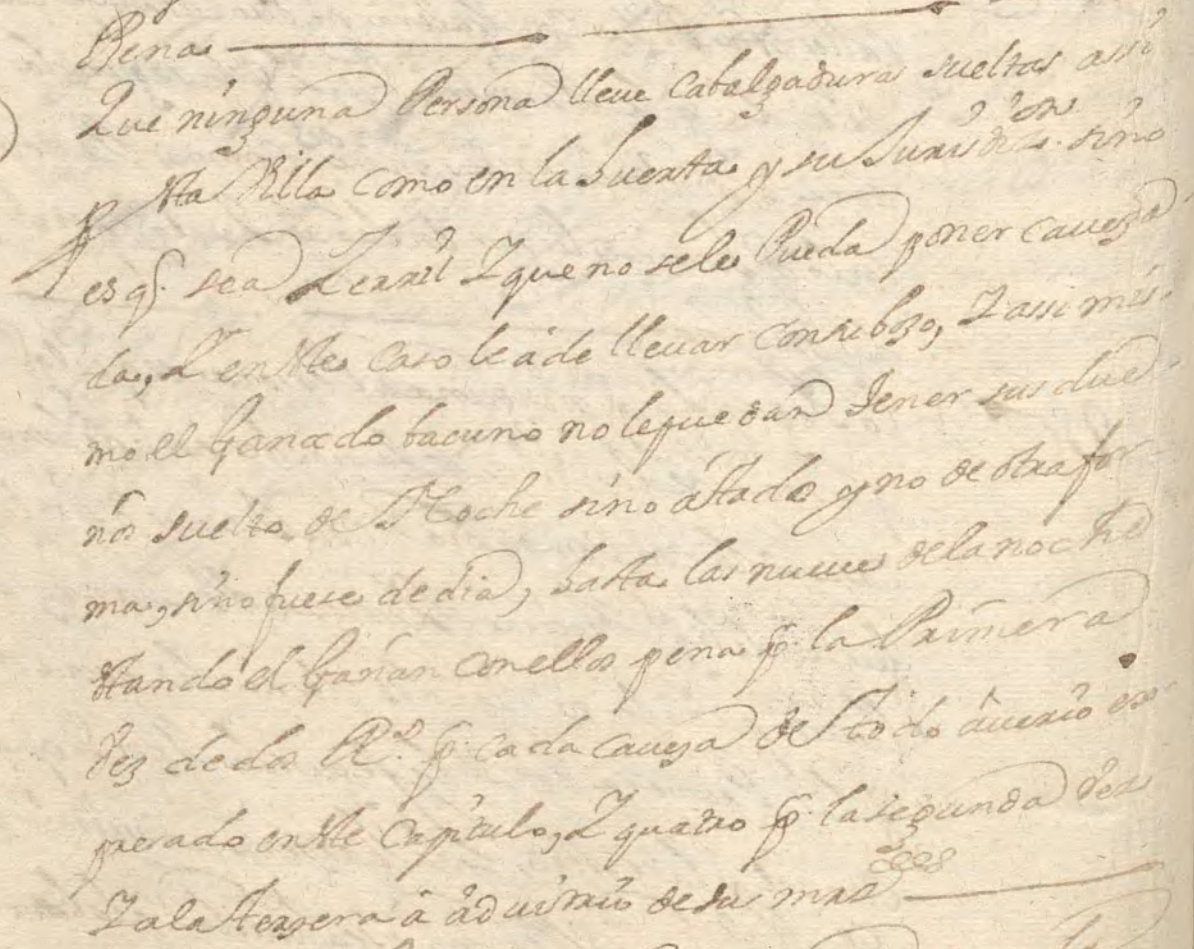 Pena
Que ninguna Persona lleve Cabalgaduras sueltas assi
P sta Villa como en la huerta y su Jurisdizon. sino
es q. sea Zerril Y que no sele Pueda poner caveza
da, Y en ste caso le â de llevar con rebozo, Y assi mis-
mo el Ganado bacuno no le puedan tener sus due-
ños suelto de Noche sino âtado y no de otra for-
ma, sino fuese de dia, hasta las nueve dela noche
stando el Gañan con ellos pena p. la Primera
vez de dos Rs. p. cada caveza de todo âverio ex-
presado en ste Capitulo, Y quatro p. la segunda vez
Y ala terzera â advitrio de sus mrzdes